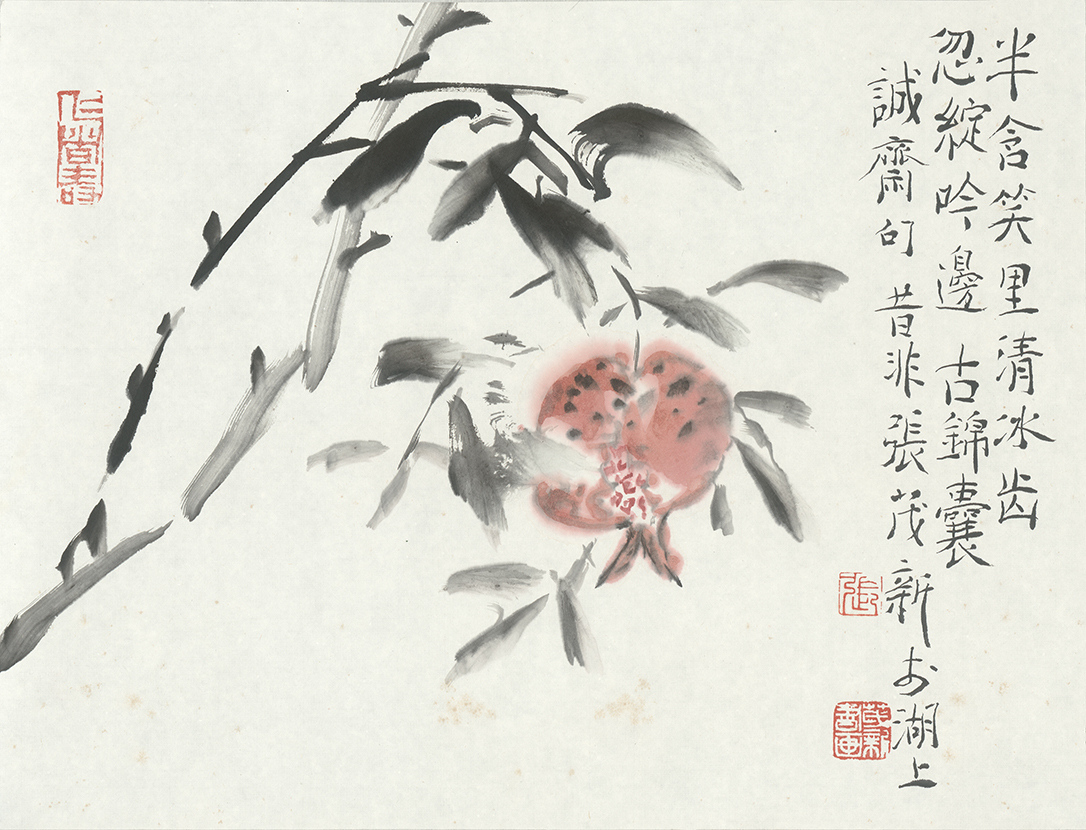 半含笑里清冰齿
忽綻吟邊古錦囊
誠齋句 昔非張茂新於湖上
張
茂新書画